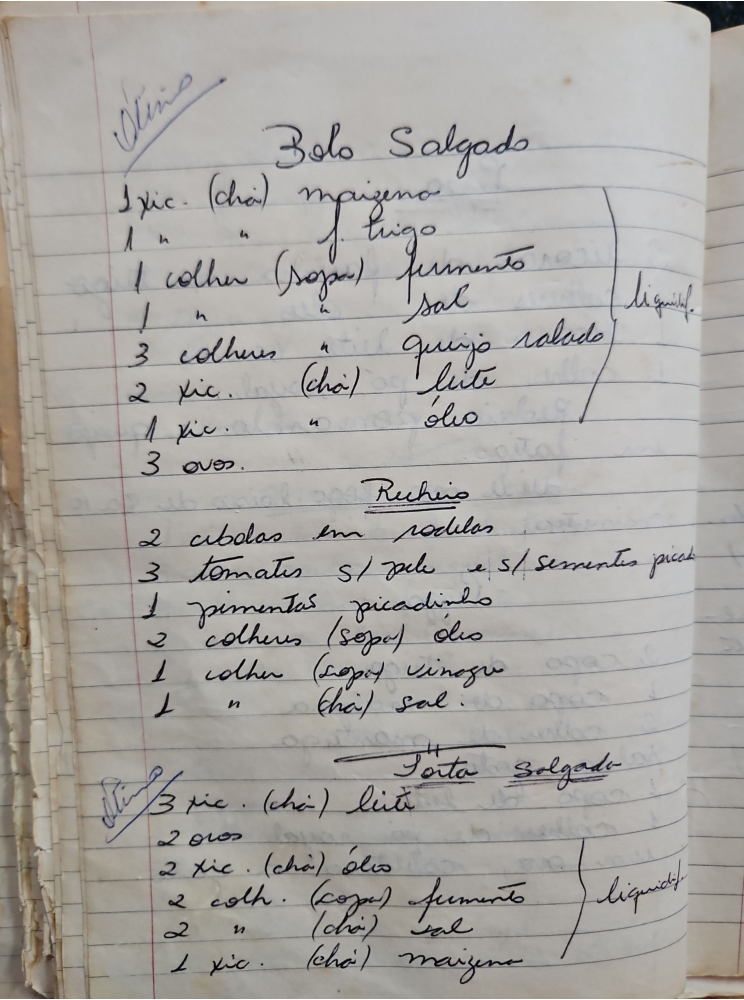 Ótimo
Bolo Salgado
1 xic. (chá) maizena
1 " " f. trigo
1 colher (sopa) fermento
1 " " sal
3 colheres " queijo ralado
liquidif.
2 xic. (chá) leite
1 xic. " óleo
3 ovos.
Recheio
2 cebolas em rodelas.
3 tomates s/ pele e s/ sementes picad
1 pimentas picadinho
2 colheres (sopa) óleo
1 colher (sopa) vinagre
1 " (chá) sal.
"
Torta Salgada
Ótimo
3 xic. (chá) leite
2 ovos
2 xic. (chá) óleo
2 colh. (sopa) fermento
liquidif.
2 " (chá) sal
1 xic. (chá) maizena